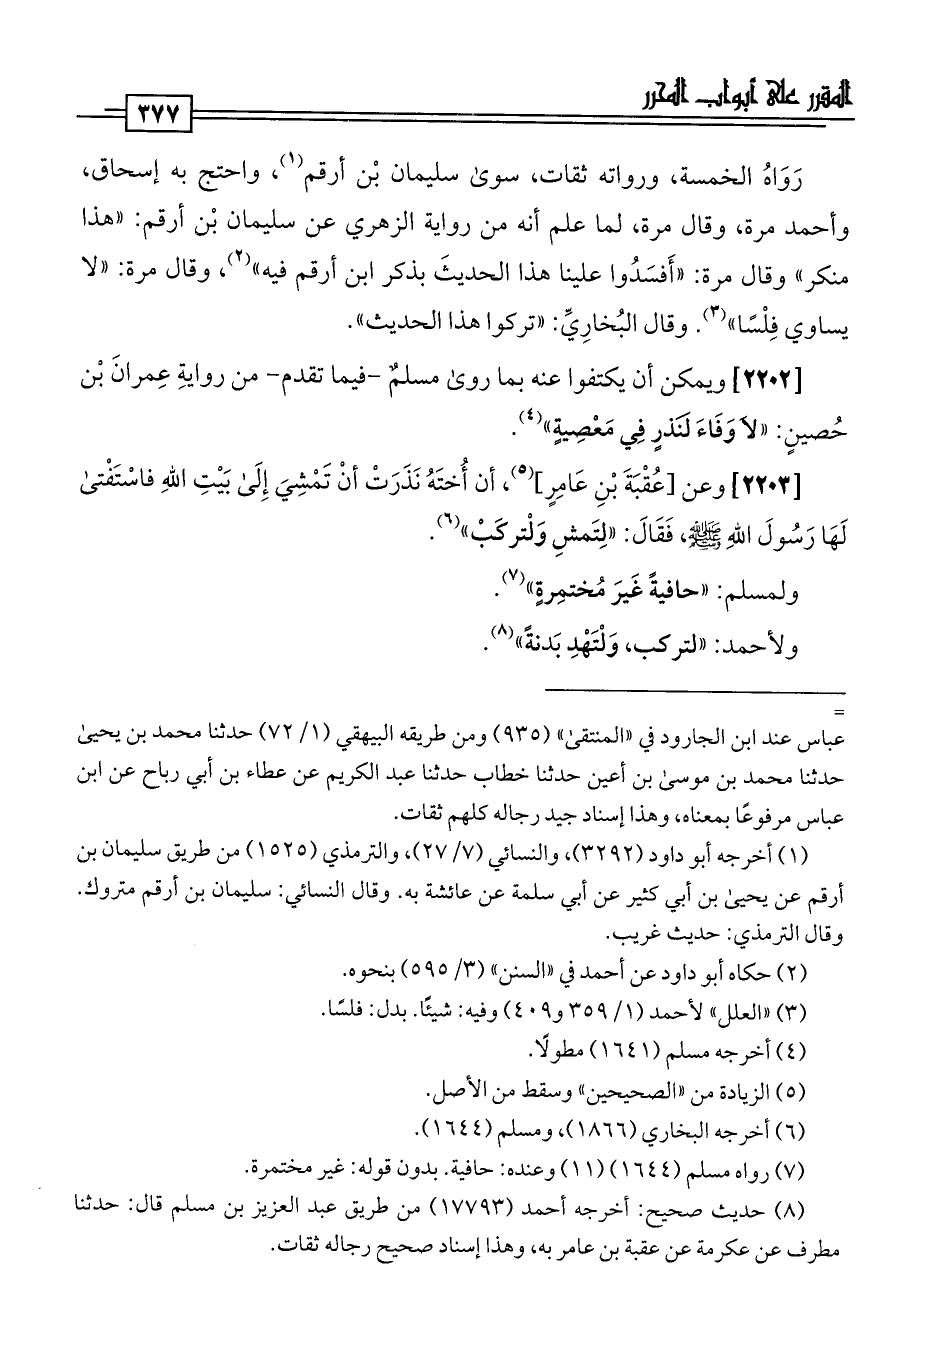 المقرر على أبواب المحرر
٣٧٧
رَوَاهُ الخمسة، ورواته ثقات، سوىٰ سليمان بْن أرقم(١)، واحتج به إسحاق،
وأحمد مرة، وقال مرة، لما علم أنه من رواية الزهري عن سليمان بْن أرقم: «هذا
منكر» وقال مرة: «أَفسَدُوا علينا هذا الحديثَ بذكر ابن أرقم فيه»(٢)، وقال مرة: «لا
يساوي فِلْسًا»(٣). وقال البُخارِيِّ: «تركوا هذا الحديث».
[٢٢٠٢] ويمكن أن يكتفوا عنه بما روىٰ مسلمٌ -فيما تقدم- من روايةِ عِمرانَ بْن
حُصينٍ: «لاَ وَفَاءَ لَنَذرٍ فِي مَعْصِيةٍ»(٤).
[٢٢٠٣] وعن [عُقْبَةَ بْنِ عَامِرٍ](٥)، أن أُختَهُ نَذَرَتْ أنْ تَمْشِيَ إِلَىٰ بَيْتِ اللهِ فاسْتَفْتىٰ
لَهَا رَسُولَ اللهِ ﷺ، فَقَالَ: «لِتَمشِ وَلْتركَبْ»(٦).
ولمسلم: «حافيةً غَيرَ مُختمِرةٍ»(٧).
ولأحمد: «لتركب، وَلْتَهْدِ بَدنةً»(٨).
=
عباس عند ابن الجارود في «المنتقىٰ» (٩٣٥) ومن طريقه البيهقي (١/ ٧٢) حدثنا محمد بن يحيىٰ
حدثنا محمد بن موسىٰ بن أعين حدثنا خطاب حدثنا عبد الكريم عن عطاء بن أبي رباح عن ابن
عباس مرفوعًا بمعناه، وهذا إسناد جيد رجاله كلهم ثقات.
(١) أخرجه أبو داود (٣٢٩٢)، والنسائي (٧/ ٢٧)، والترمذي (١٥٢٥) من طريق سليمان بن
أرقم عن يحيىٰ بن أبي كثير عن أبي سلمة عن عائشة به. وقال النسائي: سليمان بن أرقم متروك.
وقال الترمذي: حديث غريب.
(٢) حكاه أبو داود عن أحمد في «السنن» (٣/ ٥٩٥) بنحوه.
(٣) «العلل» لأحمد (١/ ٣٥٩ و٤٠٩) وفيه: شيئًا. بدل: فلسًا.
(٤) أخرجه مسلم (١٦٤١) مطولًا.
(٥) الزيادة من «الصحيحين» وسقط من الأصل.
(٦) أخرجه البخاري (١٨٦٦)، ومسلم (١٦٤٤).
(٧) رواه مسلم (١٦٤٤) (١١) وعنده: حافية. بدون قوله: غير مختمرة.
(٨) حديث صحيح: أخرجه أحمد (١٧٧٩٣) من طريق عبد العزيز بن مسلم قال: حدثنا
مطرف عن عكرمة عن عقبة بن عامر به، وهذا إسناد صحيح رجاله ثقات.